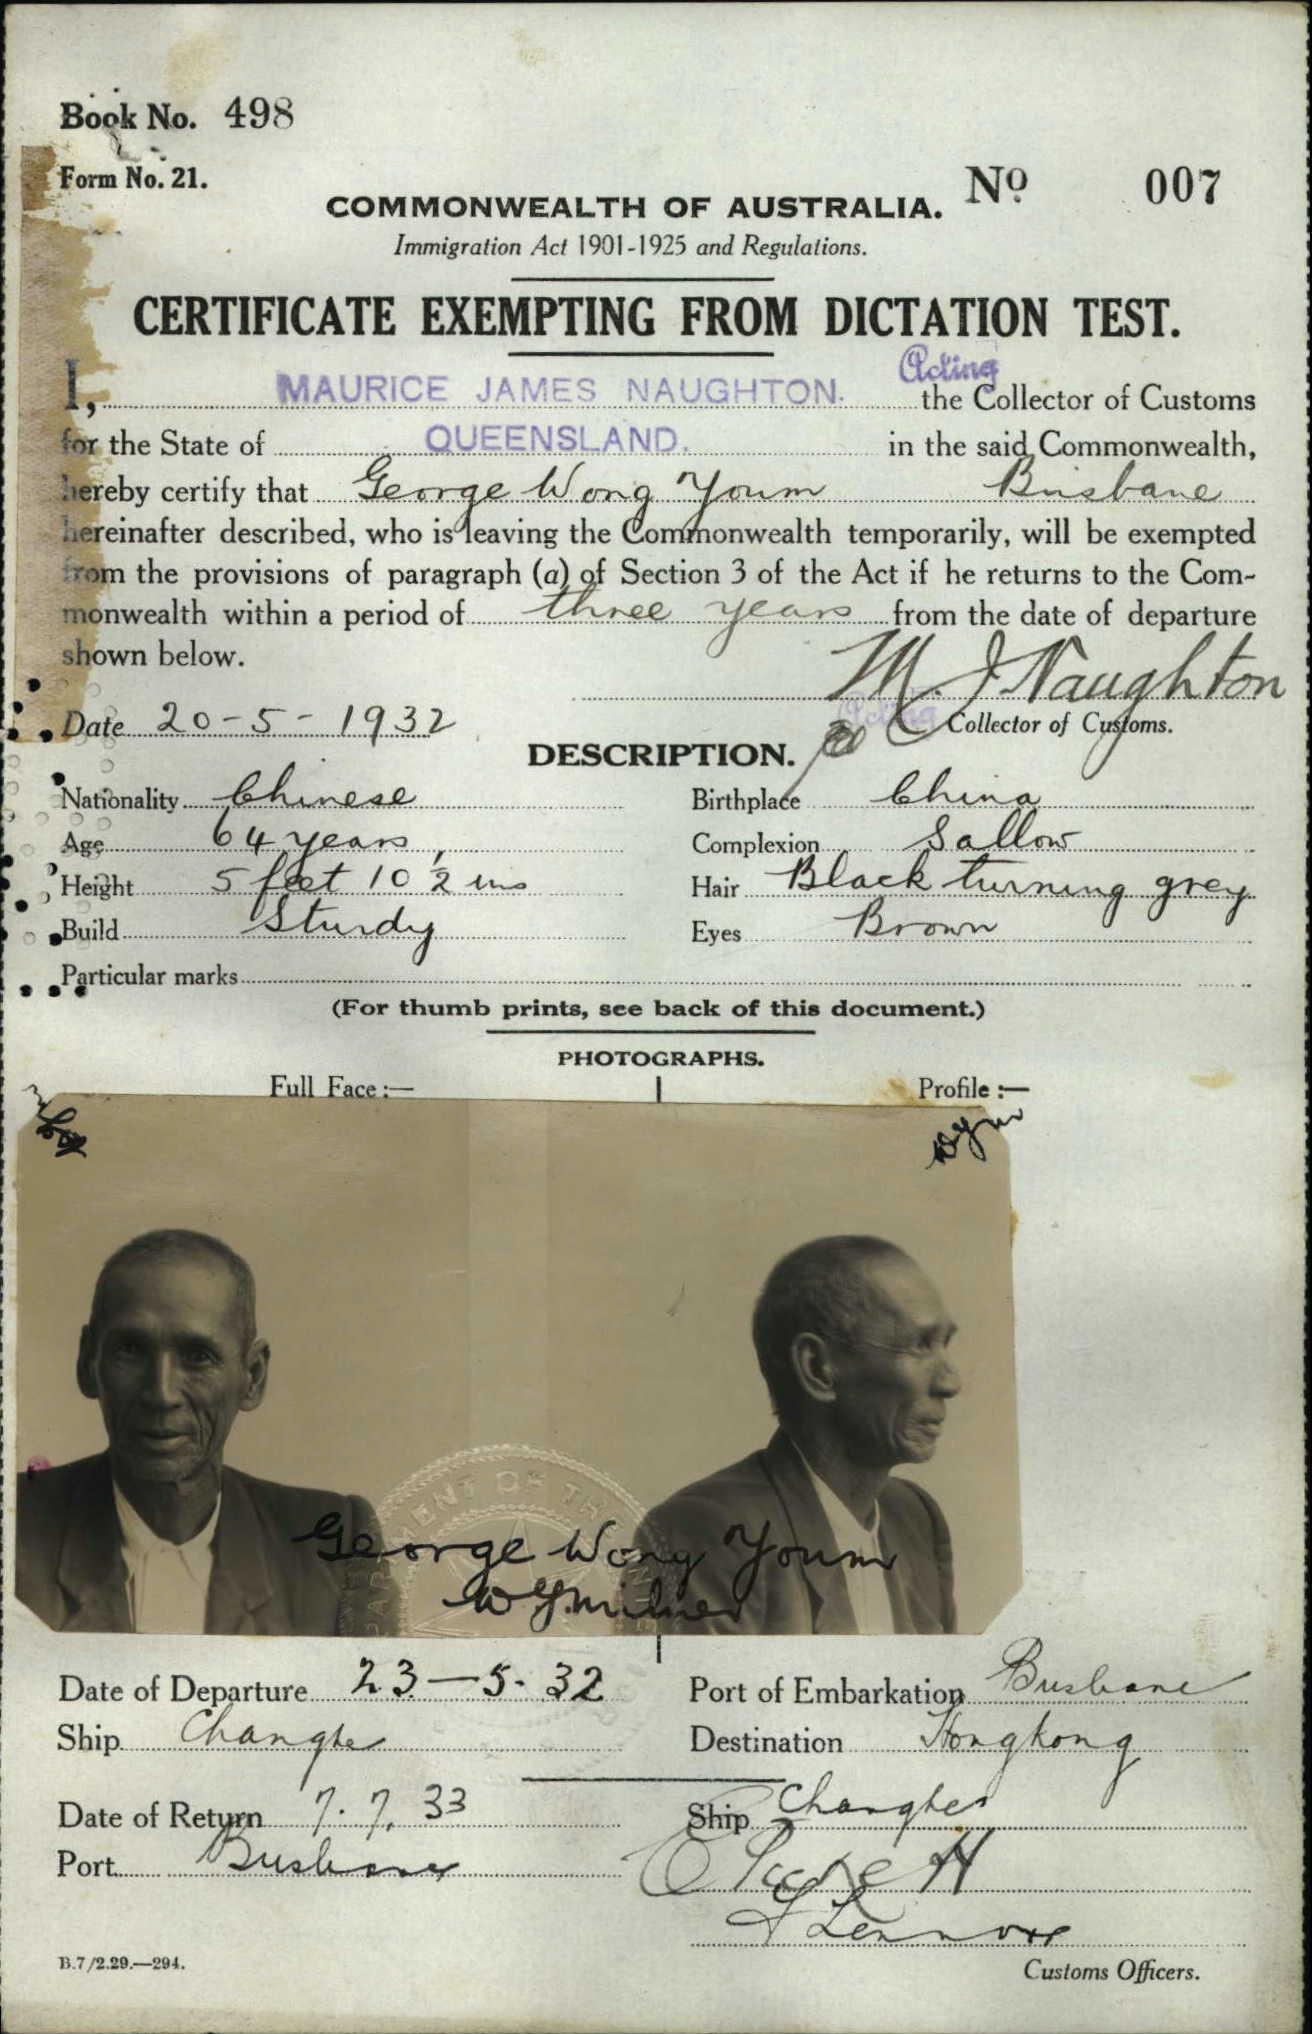 Book No. 498
Form No. 21.
No 007
COMMONWEALTH OF AUSTRALIA.
Immigration Act 1901-1925 and Regulations.
CERTIFICATE EXEMPTING FROM DICTATION TEST.
Acting
I, MAURICE JAMES NAUGHTON. the Collector of Customs
for the State of QUEENSLAND. in the said Commonwealth,
hereby certify that George Wong Youm Brisbane
hereinafter described, who is leaving the Commonwealth temporarily, will be exempted
from the provisions of paragraph (a) of Section 3 of the Act if he returns to the Com-
monwealth within a period of three years from the date of departure
shown below.
M. J. Naughton
Date 20-5-1932 Acting Collector of Customs.
DESCRIPTION.
Nationality Chinese Birthplace China
Age 64 years Complexion Sallow
Height 5 feet 10 1/2 ins Hair Black turning grey
Build Sturdy Eyes Brown
Particular marks
(For thumb prints, see back of this document.)
PHOTOGRAPHS.
Full Face :— Profile :—
George Wong Youm
Date of Departure 23-5-32 Port of Embarkation Brisbane
Ship Changte Destination Hongkong
Date of Return 7.7.33 Ship Changte
Port Brisbane
Lennox
B.7/2.29.—294. Customs Officers.